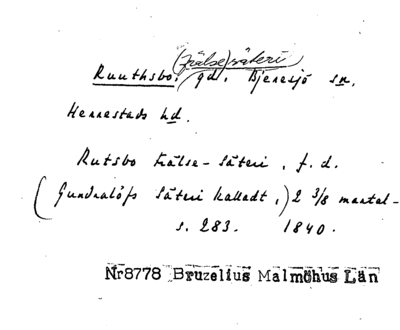 (frälse) säteri
Ruuthsbo, gd. Bjeresjö sn,
Herrestads hd.
Rutsbo Frälse-Säteri, f.d.
(Gundralöfs Säteri kalladt,) 2 3/8 mantal-
s. 283. 1840.
Nr8778 Bruzelius Malmöhus Län